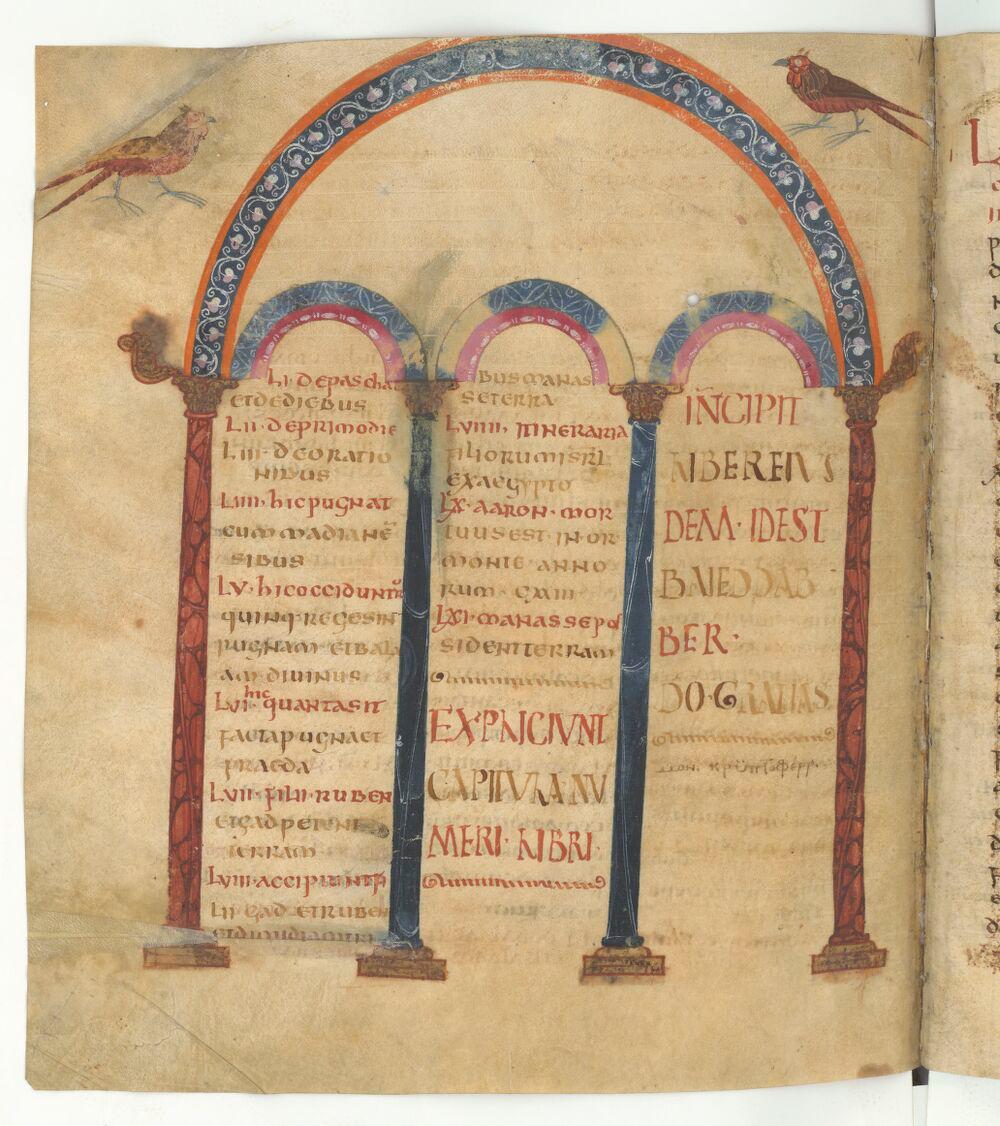 LI · De pascha
et diebus
LII · De primodie
LIII · De oratio
nibus
LIIII · hic pugnat
cum madianẽ
sibus
LV · hic occiduntũ
quinq· reges in
pugnam et bala
am divinus
LVI · hic quanta sit
facta pugna et
praeda
LVII · filii · ruben
et gad petent
terram
LVIII · accipient fi
lii gad et ruben
bus manas
se terra
LVIIII · Itineraria
filiorum isrl
ex aegypto
LX · aaron · mor
tuus est · in or
monte · anno
rum · CXXIII
LXI · manasse po
sident terram
EXPLICIUNT
CAPITULA NU
MERI · LIBRI ·
INCIPIT
LIBER EIUS
DEM · IDEST
BAIEDDAB
BER ·
DO · GRATIAS